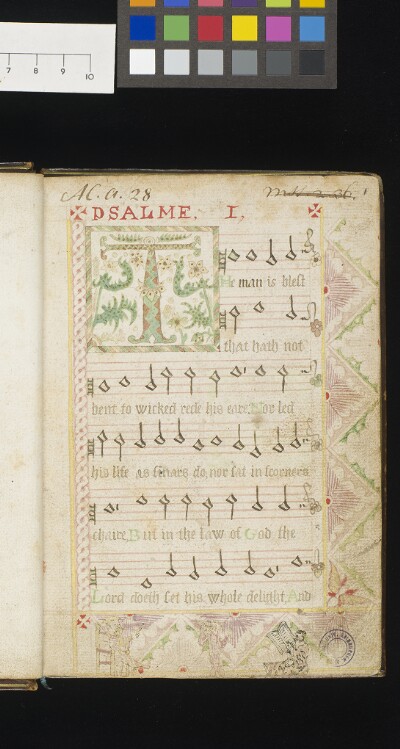 7 8 9 10
Al. a. 28
PSALME. I.
The man is blest
that hath not
bent to wicked rede his eare, Nor led
his life as sinars do, nor sat in scorners
chaire, But in the law of God the
Lord doeth set his whole delight, And